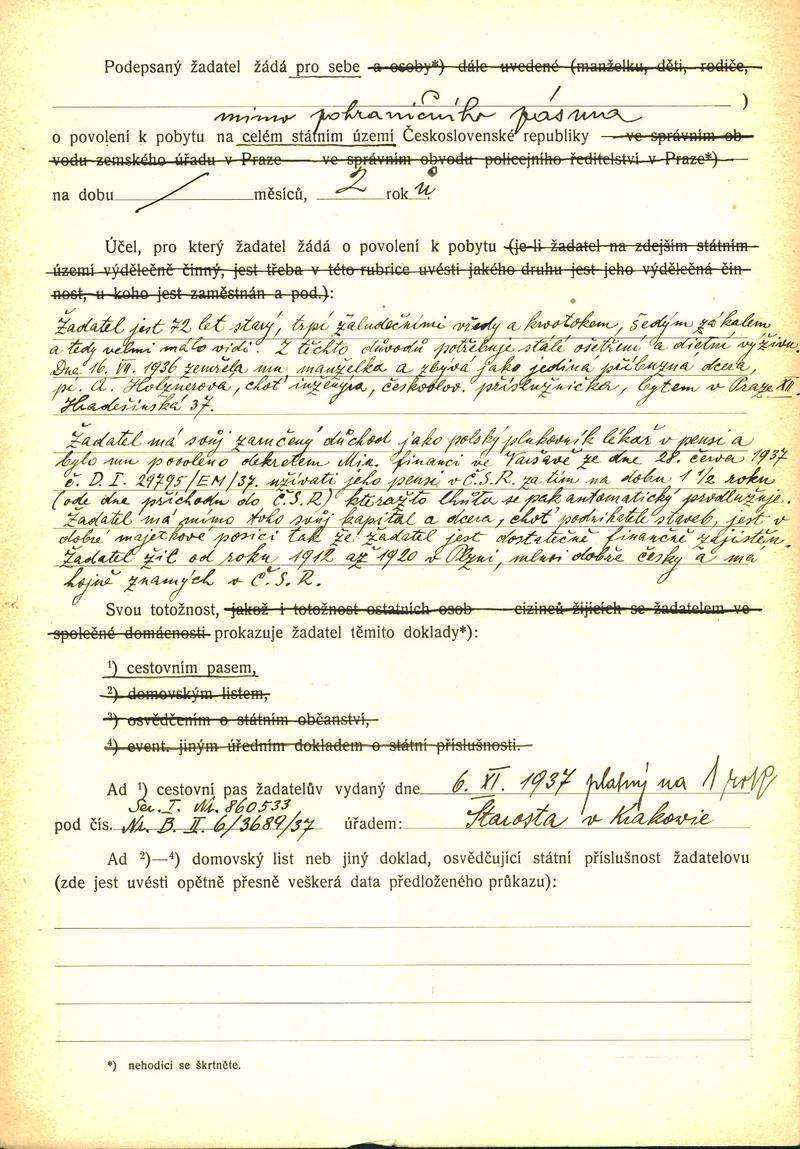 Podepsaný žadatel žádá pro sebe a osoby*) dále uvedené (manželku, děti, rodiče,
)
mimo pohraničního pásma
o povolení k pobytu na celém státním území Československé republiky — ve správním ob-
vodu zemského úřadu v Praze — ve správním obvodu policejního ředitelství v Praze*)
na dobu / měsíců, 2 rok ů
Účel, pro který žadatel žádá o povolení k pobytu (je-li žadatel na zdejším státním
území výdělečně činný, jest třeba v této rubrice uvésti jakého druhu jest jeho výdělečná čin-
nost, u koho jest zaměstnán a pod.):
Žadatel jest 72 let starý, trpí žaludečními vředy a krvotokem, šedým zákalem
a tedy velmi málo vidí. Z těchto důvodů potřebuje stálé ošetření a dietní výživu.
Dne 16. VII. 1936 zemřela mu manželka a zbývá jako jediná příbuzná dcera,
pí. A. Holznerová, choť inženýra, českoslov. příslušnicka, bytem v Praze XII.
Hradešínská 37.
Žadatel má svůj zaručený důchod jako polský plukovník lékař v pensi a
bylo mu povoleno dekretem Min. financí ve Varšavě ze dne 28. června 1937
č. D. I. 29795/EM/37. užívati jeho pensi v Č.S.R. za tím na dobu 1 1/2 roku
(ode dne příchodu do Č.S.R) kterážto lhůta se pak automaticky prodlužuje.
Žadatel má mimo toho svůj kapitál a dcera, choť podnikatele staveb, jest v
dobré majetkové posici tak že žadatel jest dostatečně finančně zajištěn.
Žadatel žil od roku 1912 až 1920 v Plzni, mluví dobře česky a má
hojně známých v Č.S.R.
Svou totožnost, jakož i totožnost ostatních osob — cizinců žijících se žadatelem ve
společné domácnosti prokazuje žadatel těmito doklady*):
¹) cestovním pasem,
²) domovským listem,
³) osvědčením o státním občanství,
⁴) event. jiným úředním dokladem o státní příslušnosti.
Ad ¹) cestovní pas žadatelův vydaný dne 6. XI. 1937 platný na 1 rok
Ser. I. Nr. 860533
pod čís. Nr. B. II. 6/3689/37 úřadem: Starosta v Krakowie
Ad ²)—⁴) domovský list neb jiný doklad, osvědčující státní příslušnost žadatelovu
(zde jest uvésti opětně přesně veškerá data předloženého průkazu):
*) nehodící se škrtněte.